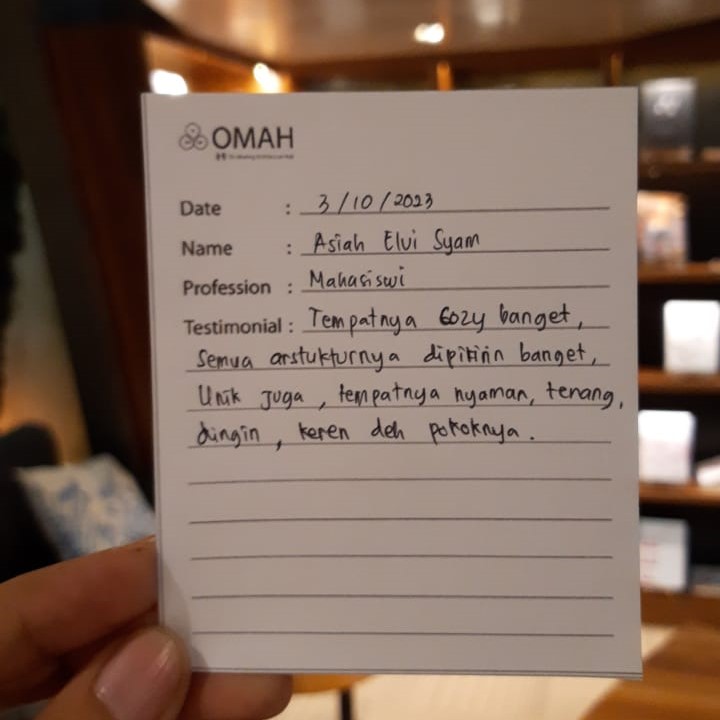 OMAH
Date : 3/10/2023
Name : Asiah Elvi Syam
Profession : Mahasiswi
Testimonial : Tempatnya Cozy banget,
Semua arstukturnya dipikirin banget,
Unik Juga, tempatnya nyaman, tenang,
dingin, keren deh pokoknya.